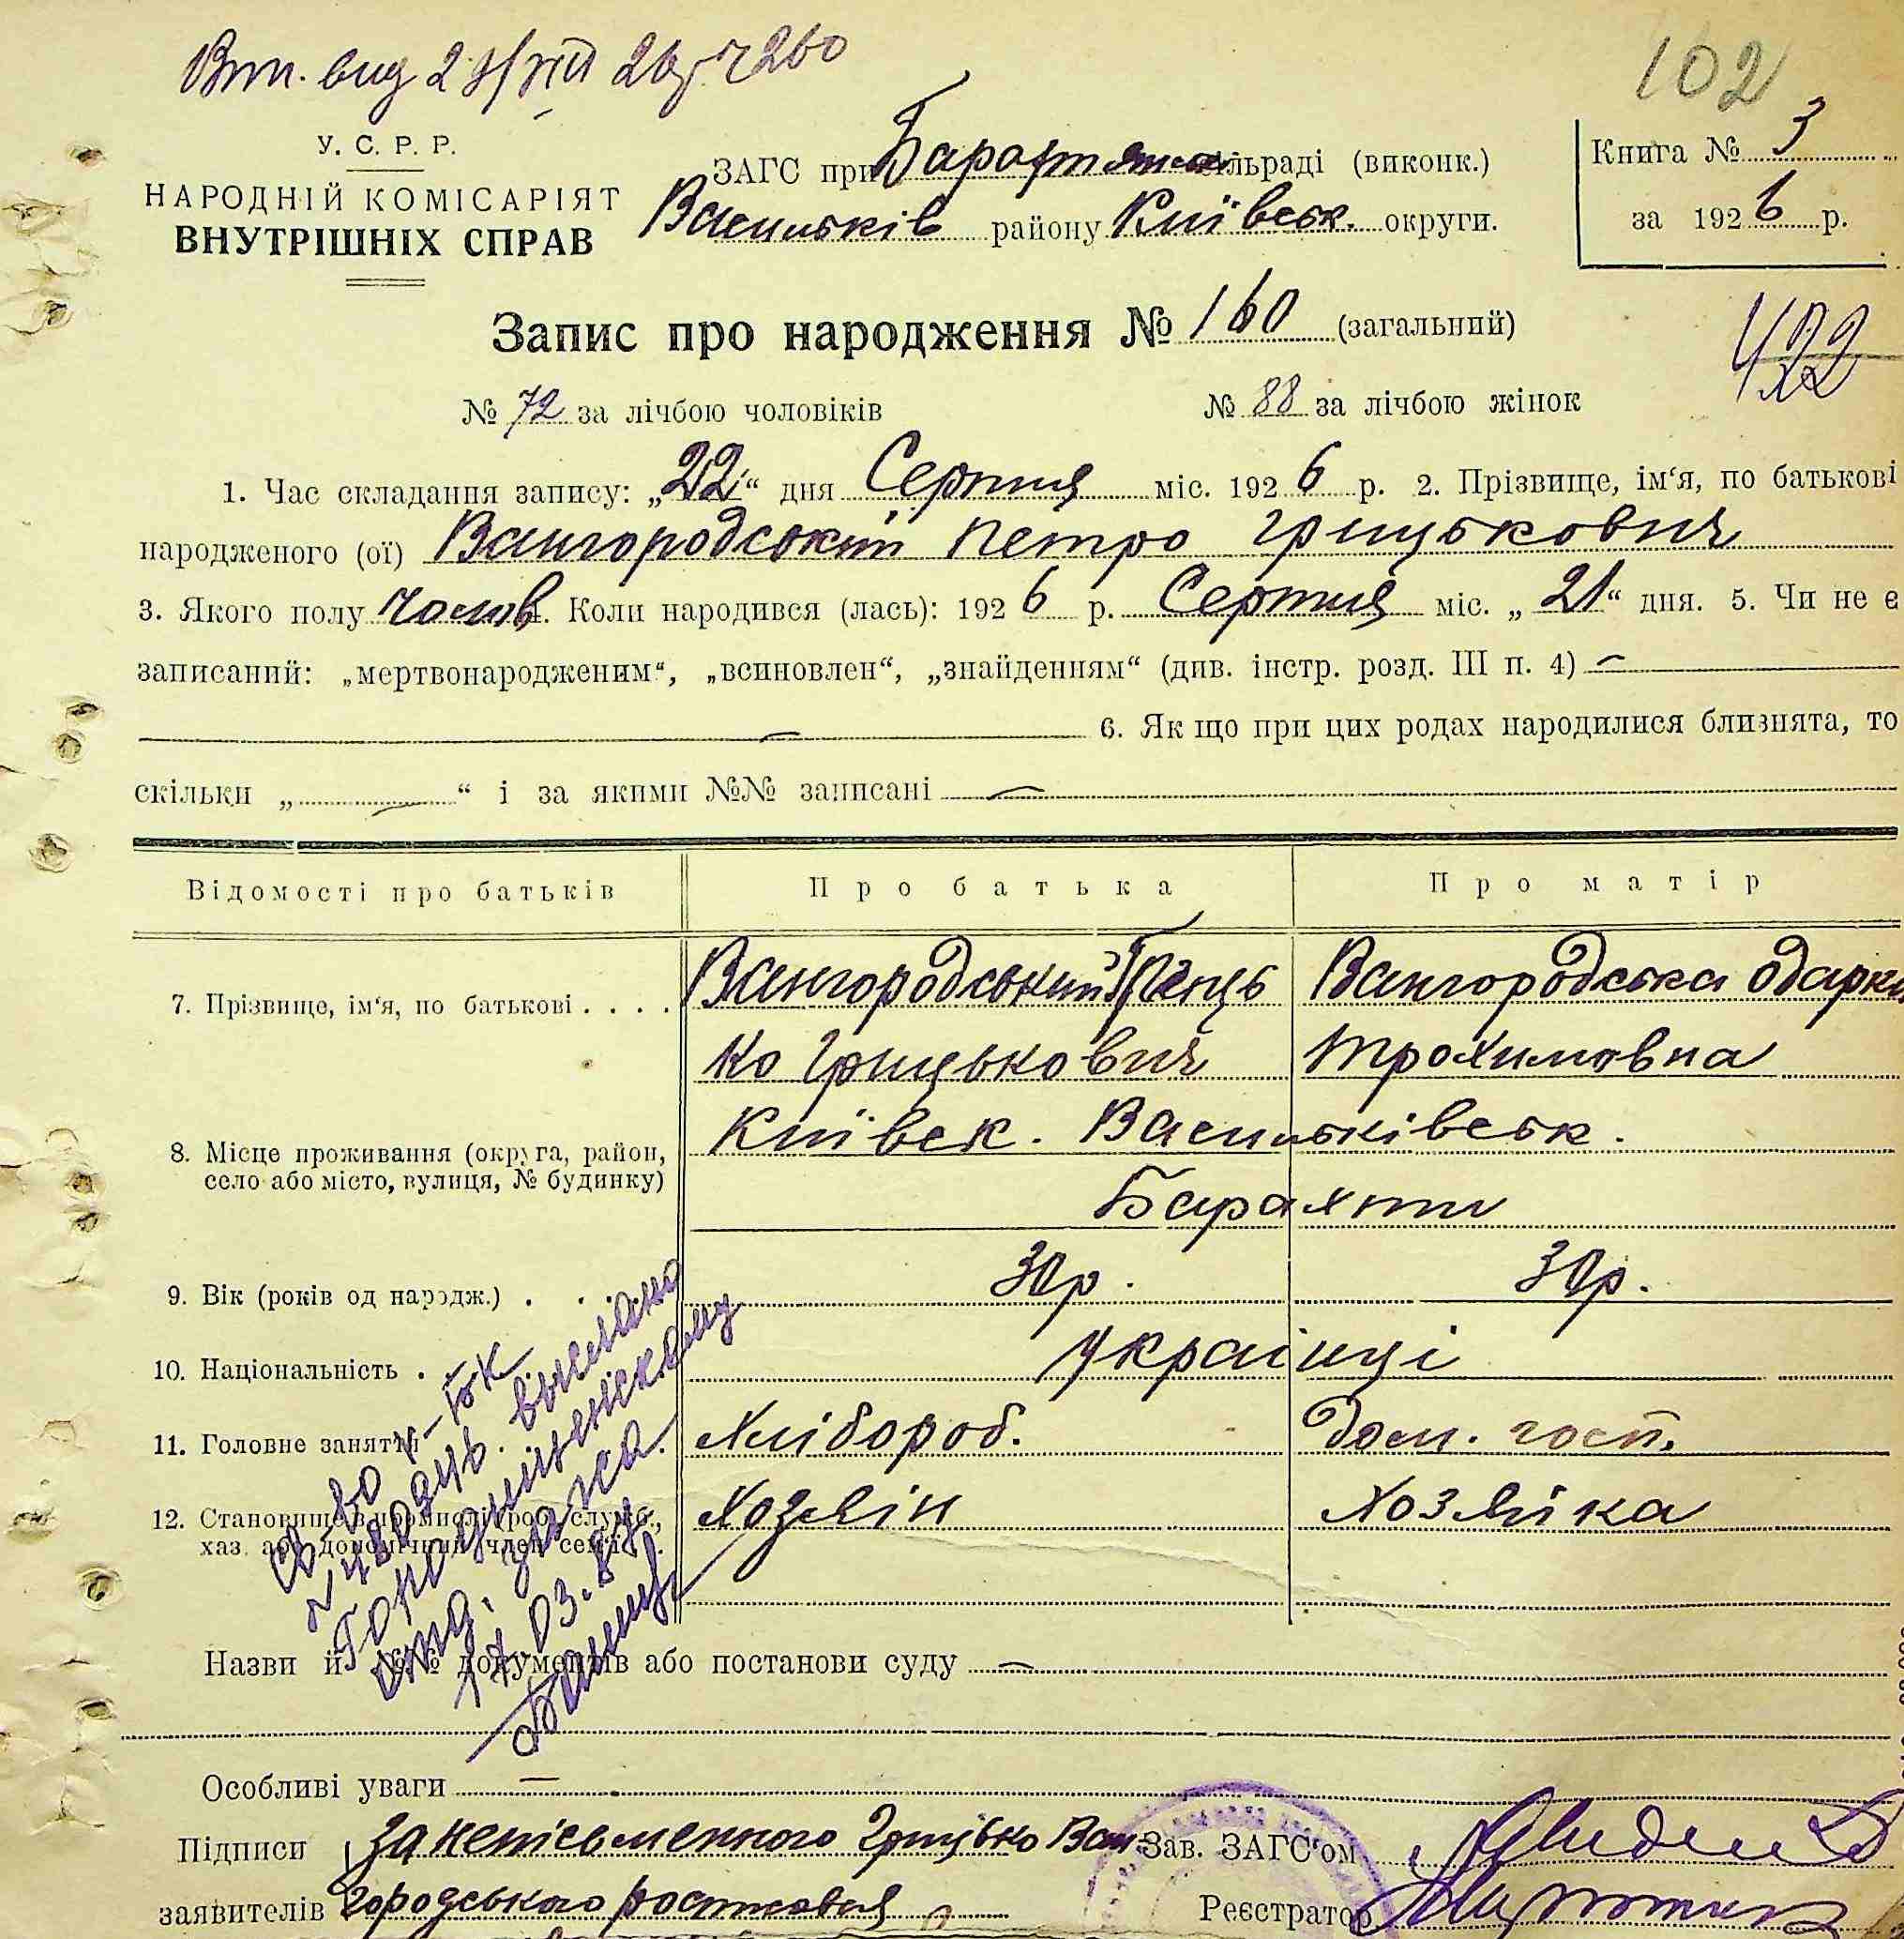 102
У. С. Р. Р.
НАРОДНІЙ КОМІСАРІЯТ
ВНУТРІШНІХ СПРАВ
ЗАГС при сільраді (виконк.)
Васильків району Київськ. округи.
Книга № 3
за 1926 р.
Запис про народження № 160 (загальний)
№ 72 за лічбою чоловіків № 88 за лічбою жінок
1. Час складання запису: „22“ дня Серпня міс. 1926 р. 2. Прізвище, ім‘я, по батькові
народженого (ої) Вангородський Петро Грицькович
3. Якого полу чолов. Коли народився (лась): 1926 р. Серпня міс. „21“ дня. 5. Чи не є
записаний: „мертвонародженим“, „всиновлен“, „знайденням“ (див. інстр. розд. III п. 4) —
— 6. Як що при цих родах народилися близнята, то
скільки „ — “ і за якими №№ записані —
Відомості про батьків Про батька Про матір
7. Прізвище, ім‘я, по батькові . . . . Вангородський Гриць Вангородська Одарка
ко Грицькович Трохимовна
8. Місце проживання (округа, район, Київськ. Васильківськ.
село або місто, вулиця, № будинку) Барахти
9. Вік (років од народж.) . . 30р. 30р.
10. Національність . . українці
11. Головне заняття Хлібороб. Дом. госп.
12. Становище в промислі (роб., служб., Хозяїн Хозяйка
хаз. або допомічний член сем‘ї) .
Св-во
выслано
загса.
17.03.87
Назви й №№ документів або постанови суду —
Особливі уваги —
Підписи За неписьменного Грицько Ван- Зав. ЗАГС‘ом
заявителів городського Реєстратор